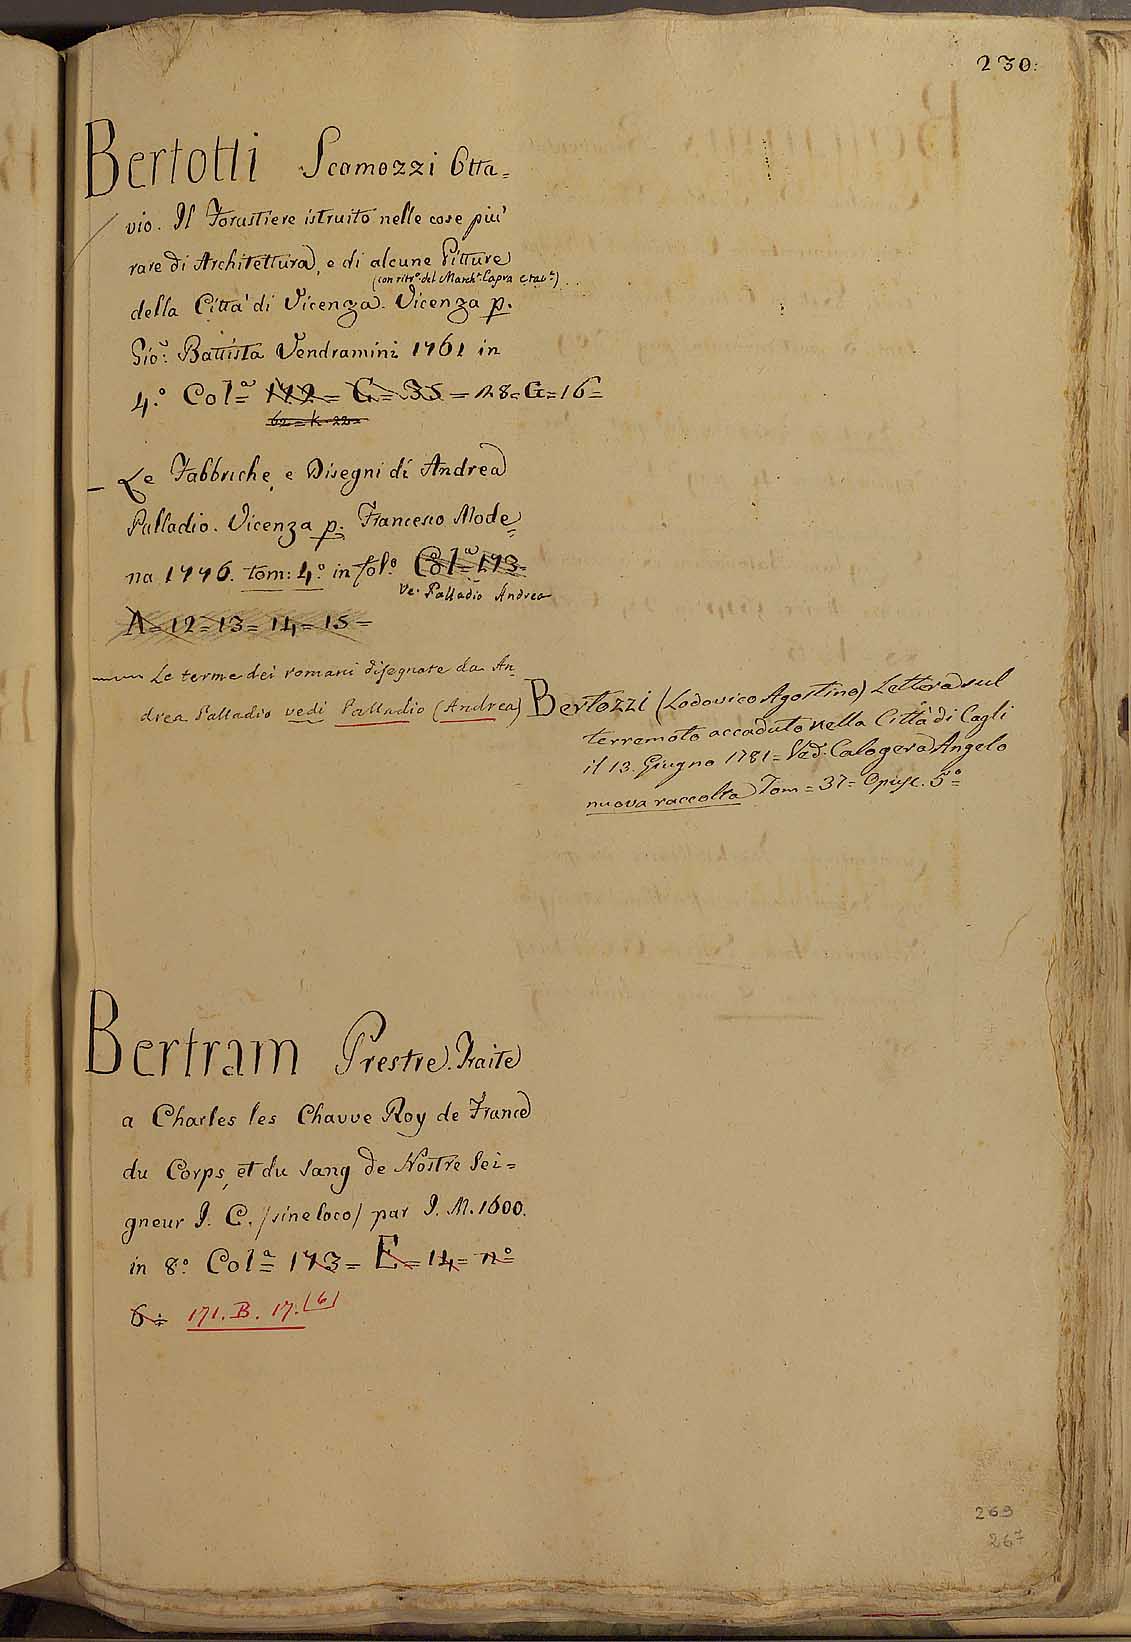 230.
Bertotti Scamozzi Otta=
vio. Il Forustiere istruito nelle cose piu'
rare di Architettura, e di alcune Pitture
(con ritr.º del March.e Capra
della Citta' di Vicenza. Vicenza p.
Gio: Battista Vendramini 1761 in
4.º Col.ª 172 = G = 35 = 28 = G = 16 =
62 = k = 22 =
– Le Fabbriche, e Disegni di Andrea
Palladio. Vicenza p. Francesco Mode=
na 1776. tom: 4.º in fol.º Col.ª 173.
Ve. Palladio Andrea
A = 12 = 13 = 14 = 15 =
Le terme dei romani disegnate da An=
drea Palladio vedi Palladio (Andrea)
Bertozzi (Lodovico Agostino) Lettera sul
terremoto accaduto nella Città di Cagli
il 13. Giugno 1781 = Ved. Calogerà Angelo
nuova raccolta Tom = 37 = Opusc. 5º =
Bertram Prestre. Traite
a Charles les Chauve Roy de France
du Corps, et du sang de Nostre Sei=
gneur J. C. /sine loco/ par J. M. 1600.
in 8.º Col.ª 173 = E = 14 = nº
6 = 171. B. 17. (6)
269
267